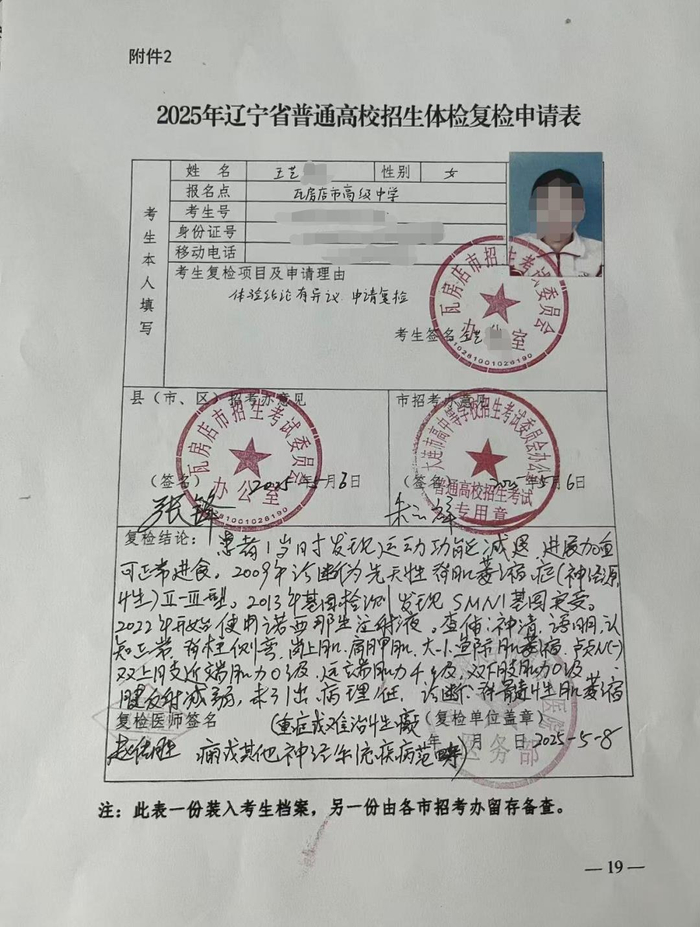 附件2
2025年辽宁省普通高校招生体检复检申请表
考生本人填写
姓 名 王艺 性别 女
报名点 瓦房店市高级中学
考生号
身份证号
移动电话
考生复检项目及申请理由
体验结论有异议 申请复检
考生签名
瓦房店市招生考试委员会
办公室
210281001026190
县（市、区）招考办意见
市招考办意见
瓦房店市招生考试委员会
办公室
大连市高中等学校招生考试委员会办公
普通高校招生考试
专用章
（签名） 2025年5月6日
（签名） 2025年5月6日
张锋
复检结论：患者1岁时发现运动功能减退，进展加重
可正常进食。2009年诊断为先天性脊肌萎缩症(神经源
性)Ⅱ-Ⅲ型。2013年基因检测发现SMN1基因突变。
2022年开始使用诺西那生注射液。查体：神清，语明，认
知正常，脊柱侧弯，岗上肌、肩胛肌、大小鱼际肌萎缩
双上肢近端肌力0级，远端肌力4级，双下肢肌力0级
腱反射减弱，未引出病理征。诊断：脊髓性肌萎缩
复检医师签名 (重症或难治性癫 （复检单位盖章）
痫或其他神经系统疾病范畴) 年 月 日 2025-5-8
医务部
注：此表一份装入考生档案，另一份由各市招考办留存备查。
— 19 —